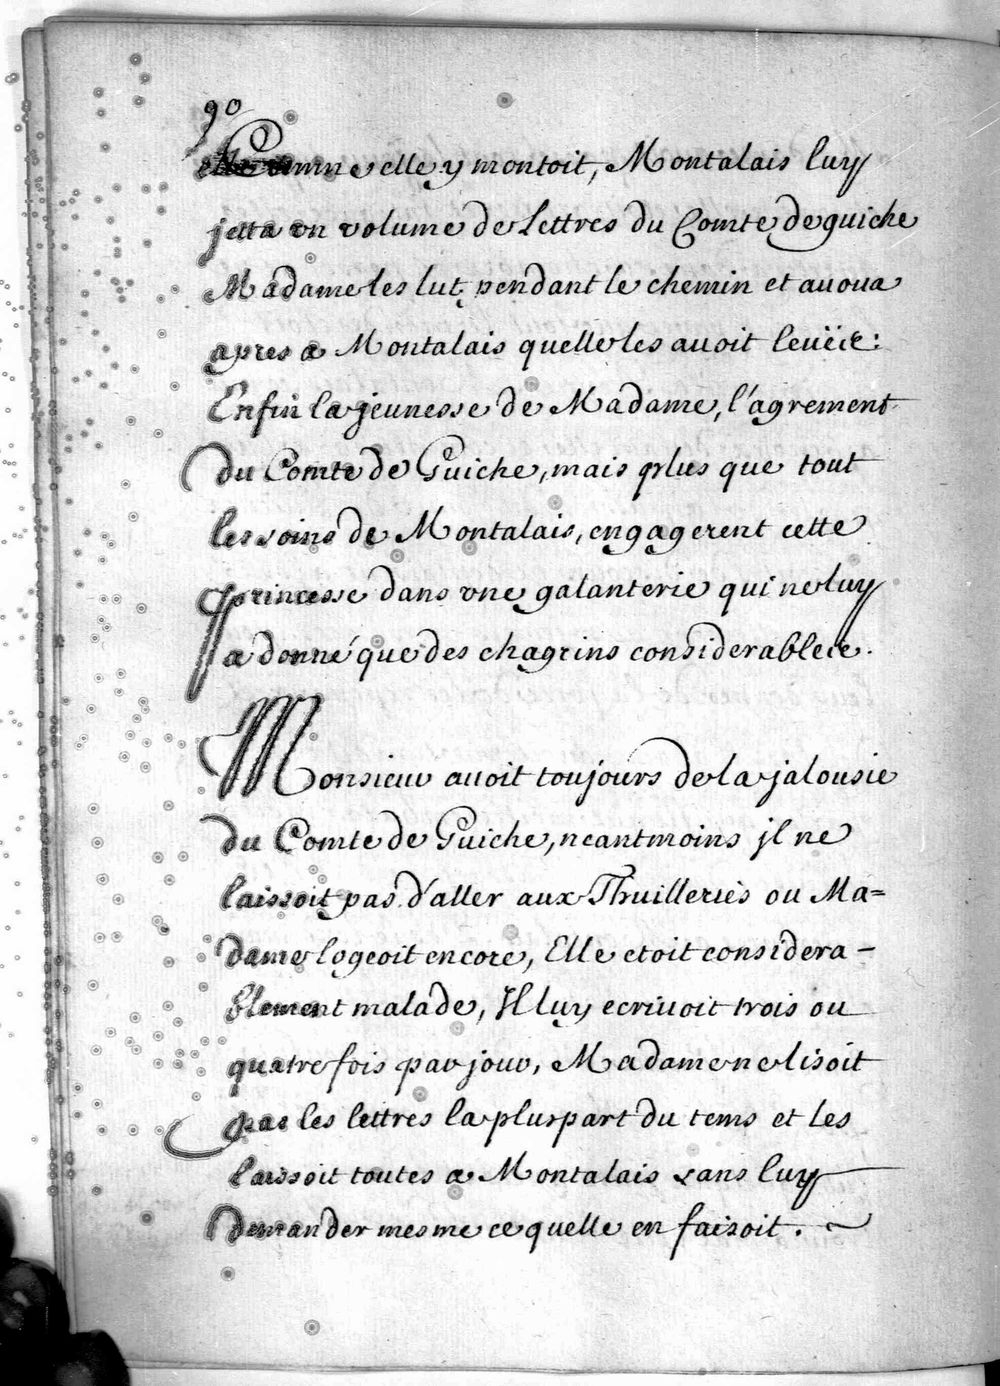 90
Comme elle y montoit, Montalais luy
jetta vn volume de Lettres du Comte de guiche
Madame les lut pendant le chemin et auoua
apres a Montalais quelle les auoit leuës:
Enfin la jeunesse de Madame, l'agrement
du Comte de Guiche, mais plus que tout
les soins de Montalais, engagerent cette
princesse dans vne galanterie qui ne luy
a donné que des chagrins considerables.
Monsieur auoit toujours de la jalousie
du Comte de Guiche, neantmoins jl ne
laissoit pas d'aller aux Thuilleries ou Ma=
dame logeoit encore, Elle etoit considera-
blement malade, Il luy ecriuoit trois ou
quatre fois par jour, Madame ne lisoit
pas les lettres la pluspart du tems et les
laissoit toutes a Montalais sans luy
demander mesme ce quelle en faisoit.